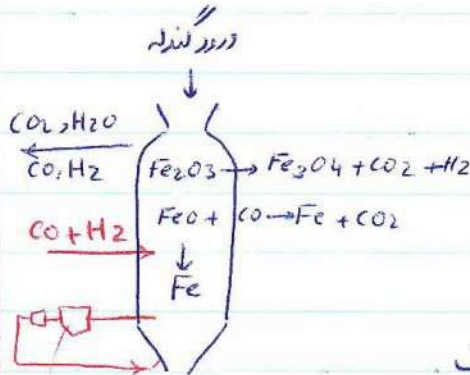 ورود گندله
CO2, H2O
CO, H2
Fe2O3 → Fe3O4 + CO2 + H2
FeO + CO → Fe + CO2
CO + H2
↓
Fe